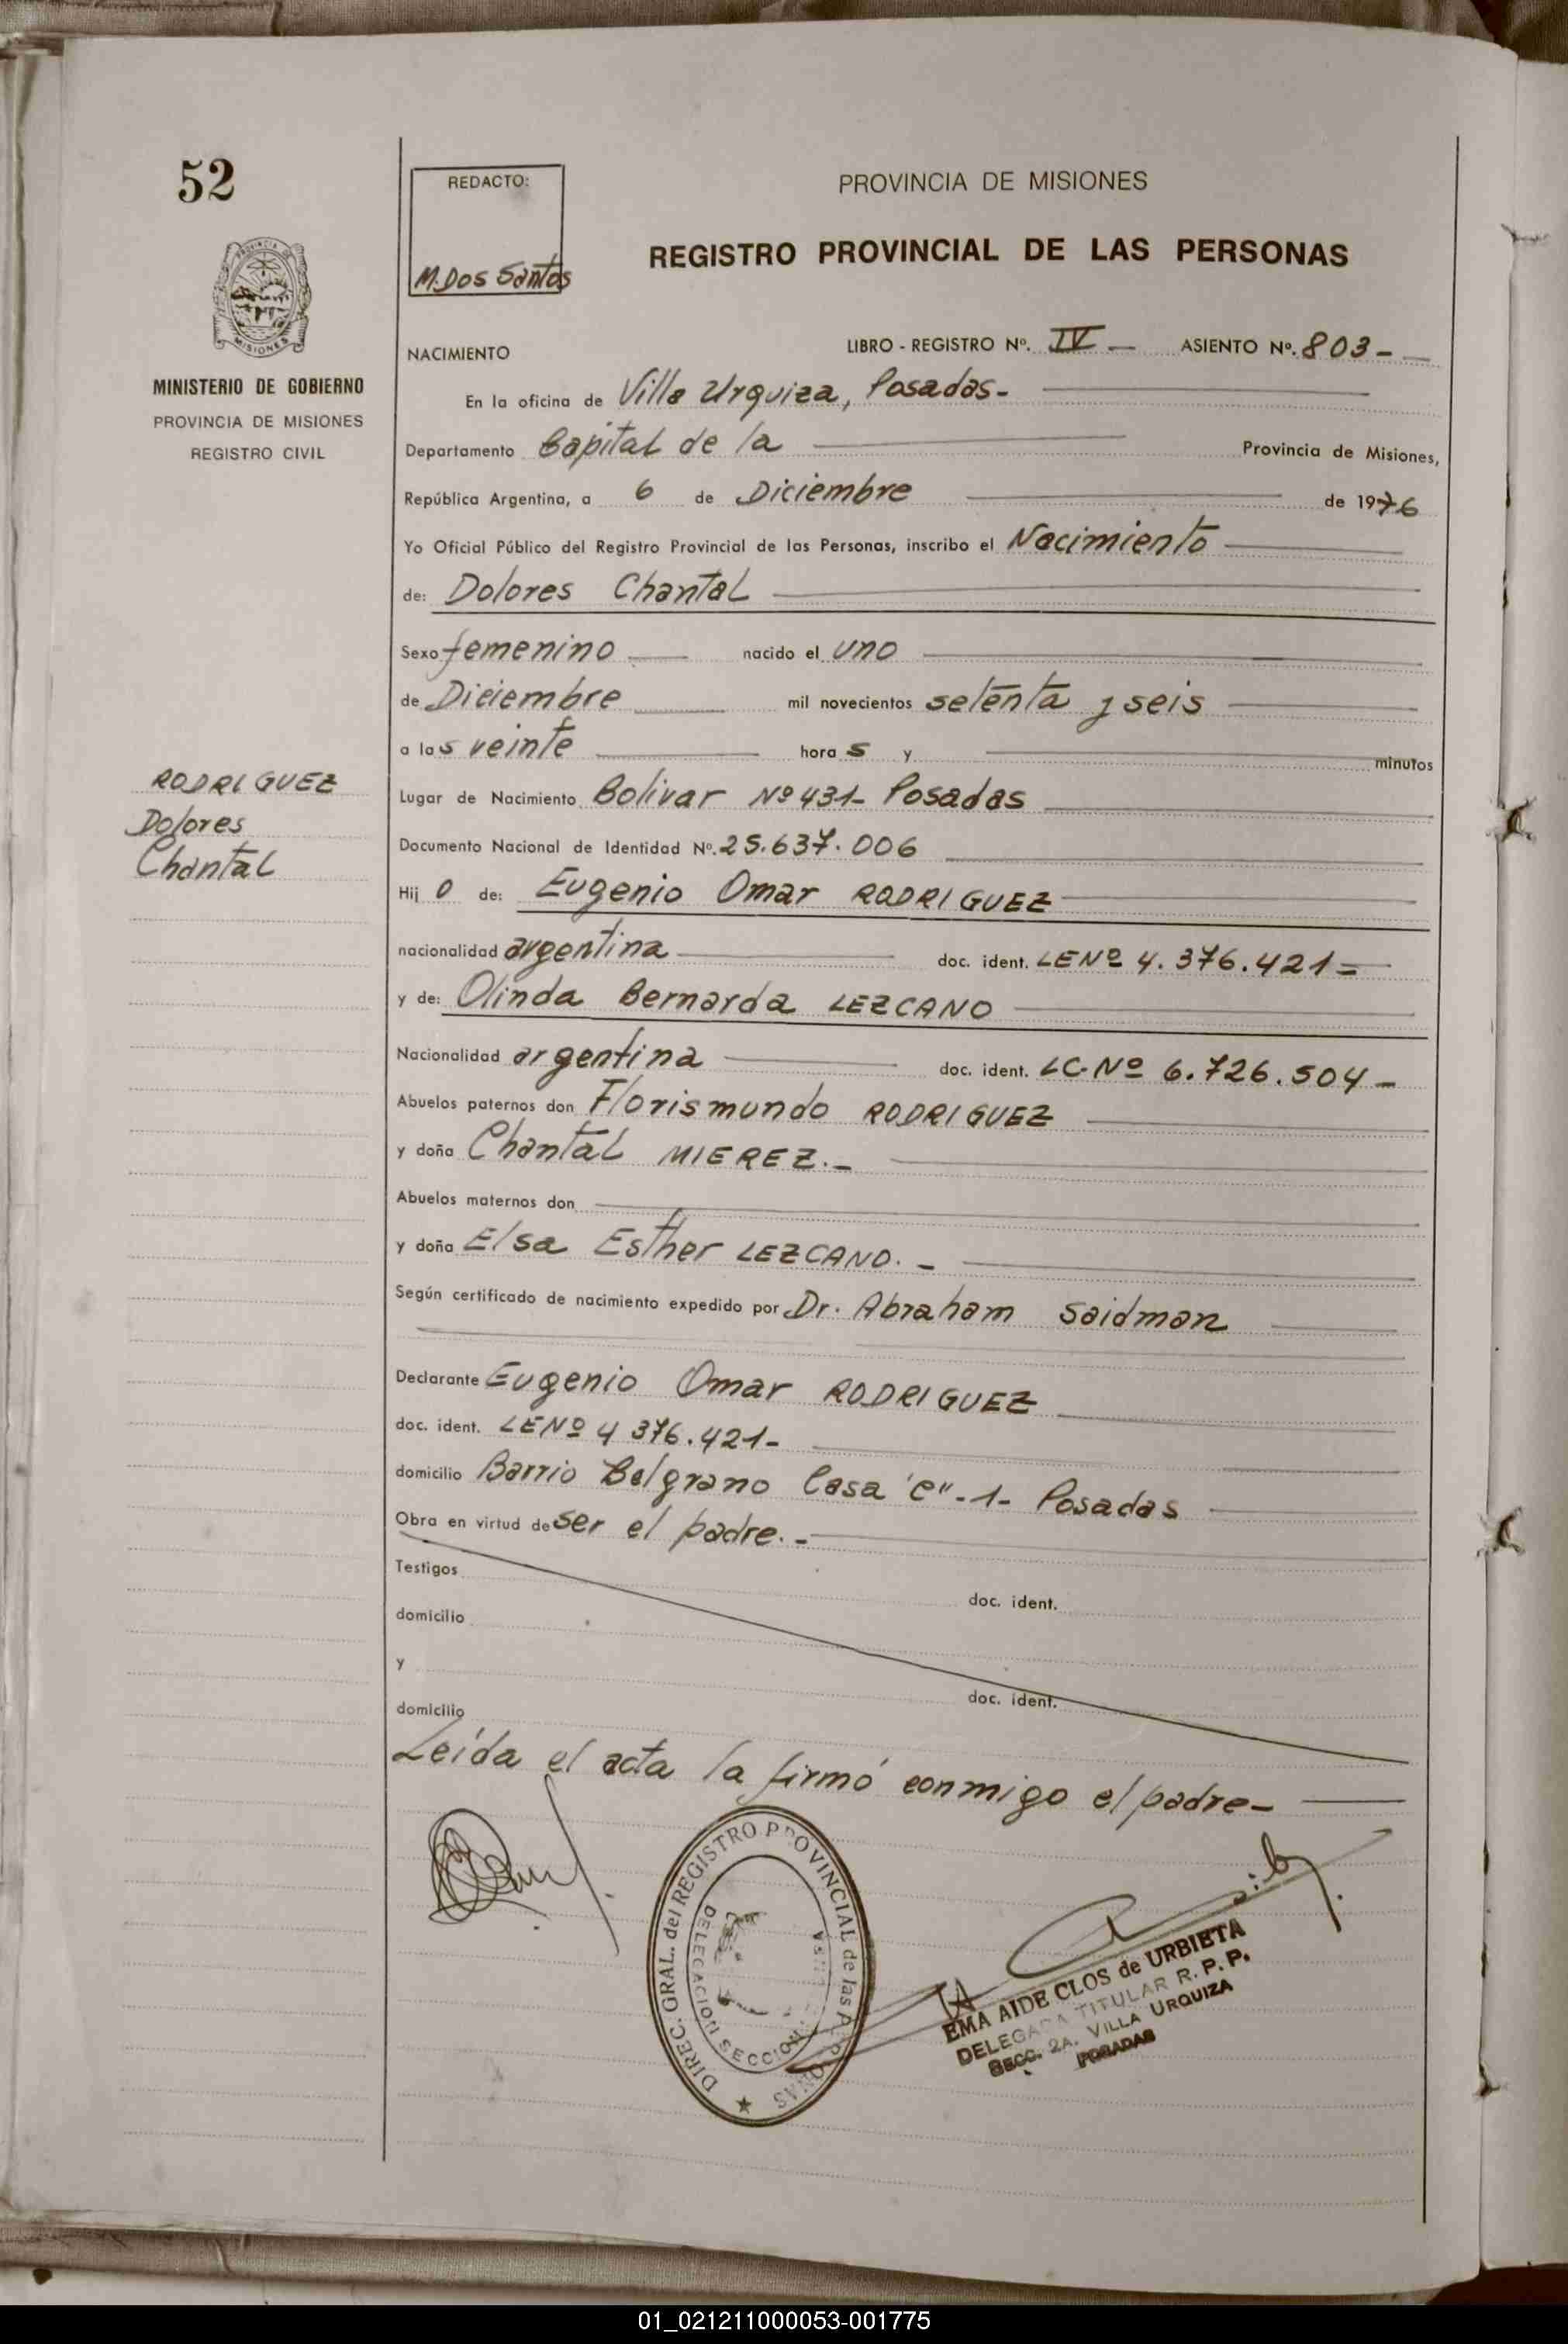 52
PROVINCIA DE
MISIONES
MINISTERIO DE GOBIERNO
PROVINCIA DE MISIONES
REGISTRO CIVIL
RODRIGUEZ
Dolores
Chantal
REDACTO:
M. Dos Santos
PROVINCIA DE MISIONES
REGISTRO PROVINCIAL DE LAS PERSONAS
NACIMIENTO LIBRO - REGISTRO Nº. IV - ASIENTO Nº. 803 -
En la oficina de Villa Urquiza, Posadas -
Departamento Capital de la Provincia de Misiones,
República Argentina, a 6 de Diciembre de 1976
Yo Oficial Público del Registro Provincial de las Personas, inscribo el Nacimiento
de: Dolores Chantal
Sexo femenino nacido el uno
de Diciembre mil novecientos setenta y seis
a las veinte horas y minutos
Lugar de Nacimiento Bolivar Nº 431- Posadas
Documento Nacional de Identidad Nº. 25.637.006
Hijo de: Eugenio Omar RODRIGUEZ
nacionalidad argentina doc. ident. LE Nº 4.376.421=
y de: Olinda Bernarda LEZCANO
Nacionalidad argentina doc. ident. LC. Nº 6.726.504 -
Abuelos paternos don Florismundo RODRIGUEZ
y doña Chantal MIEREZ. -
Abuelos maternos don
y doña Elsa Esther LEZCANO. -
Según certificado de nacimiento expedido por Dr. Abraham Saidman
Declarante Eugenio Omar RODRIGUEZ
doc. ident. LE Nº 4 376.421-
domicilio Barrio Belgrano Casa 'C" - 1 - Posadas
Obra en virtud de ser el padre. -
Testigos doc. ident.
domicilio
y doc. ident.
domicilio
Leída el acta la firmó conmigo el padre -
DIREC. GRAL. del REGISTRO PROVINCIAL de las PERSONAS
DELEGACION SECCION
EMA AIDE CLOS de URBIETA
DELEGADA TITULAR R. P. P.
SECC. 2A. VILLA URQUIZA
POSADAS
01_021211000053-001775